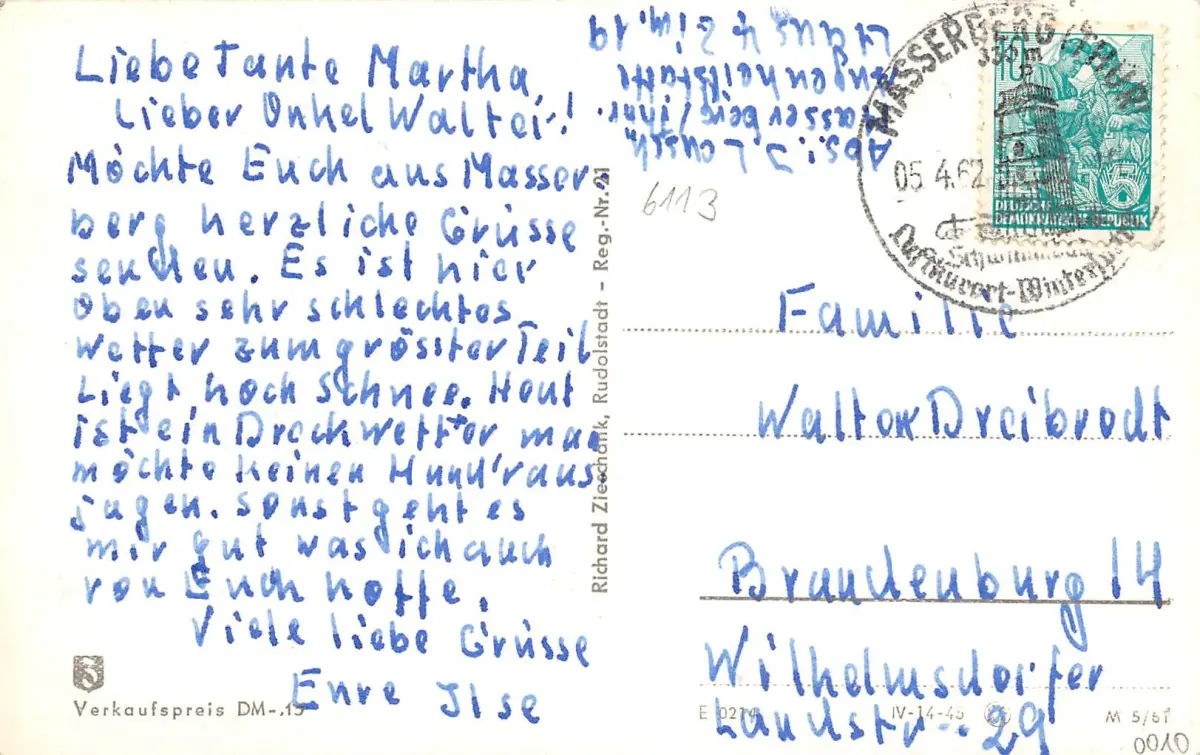 Liebe Tante Martha,
Lieber Onkel Walter!
Möchte Euch aus Masser
berg herzliche Grüsse
senden. Es ist hier
oben sehr schlechtes
Wetter zum grösster Teil
Liegt noch Schnee. Heut
ist ein Dreckwetter man
möchte keinen Hund 'raus
jagen. Sonst geht es
mir gut was ich auch
von Euch hoffe.
Viele liebe Grüsse
Eure Ilse
Verkaufspreis DM -.15
Abs.: I.
asserberg/Thür.
Augenheilstätt
Haus 4 Zim. 19
6113
Richard Zieschank, Rudolstadt - Reg.-Nr. 21
MASSERBERG (THÜR)
05.4.62
Luftkurort-Wintersport
10
5
DEUTSCHE
DEMOKRATISCHE REPUBLIK
Familie
Walter Dreibrodt
Brandenburg 14
Wilhelmsdorfer
Landstr. 29
IV-14-45
M 5/61
0010